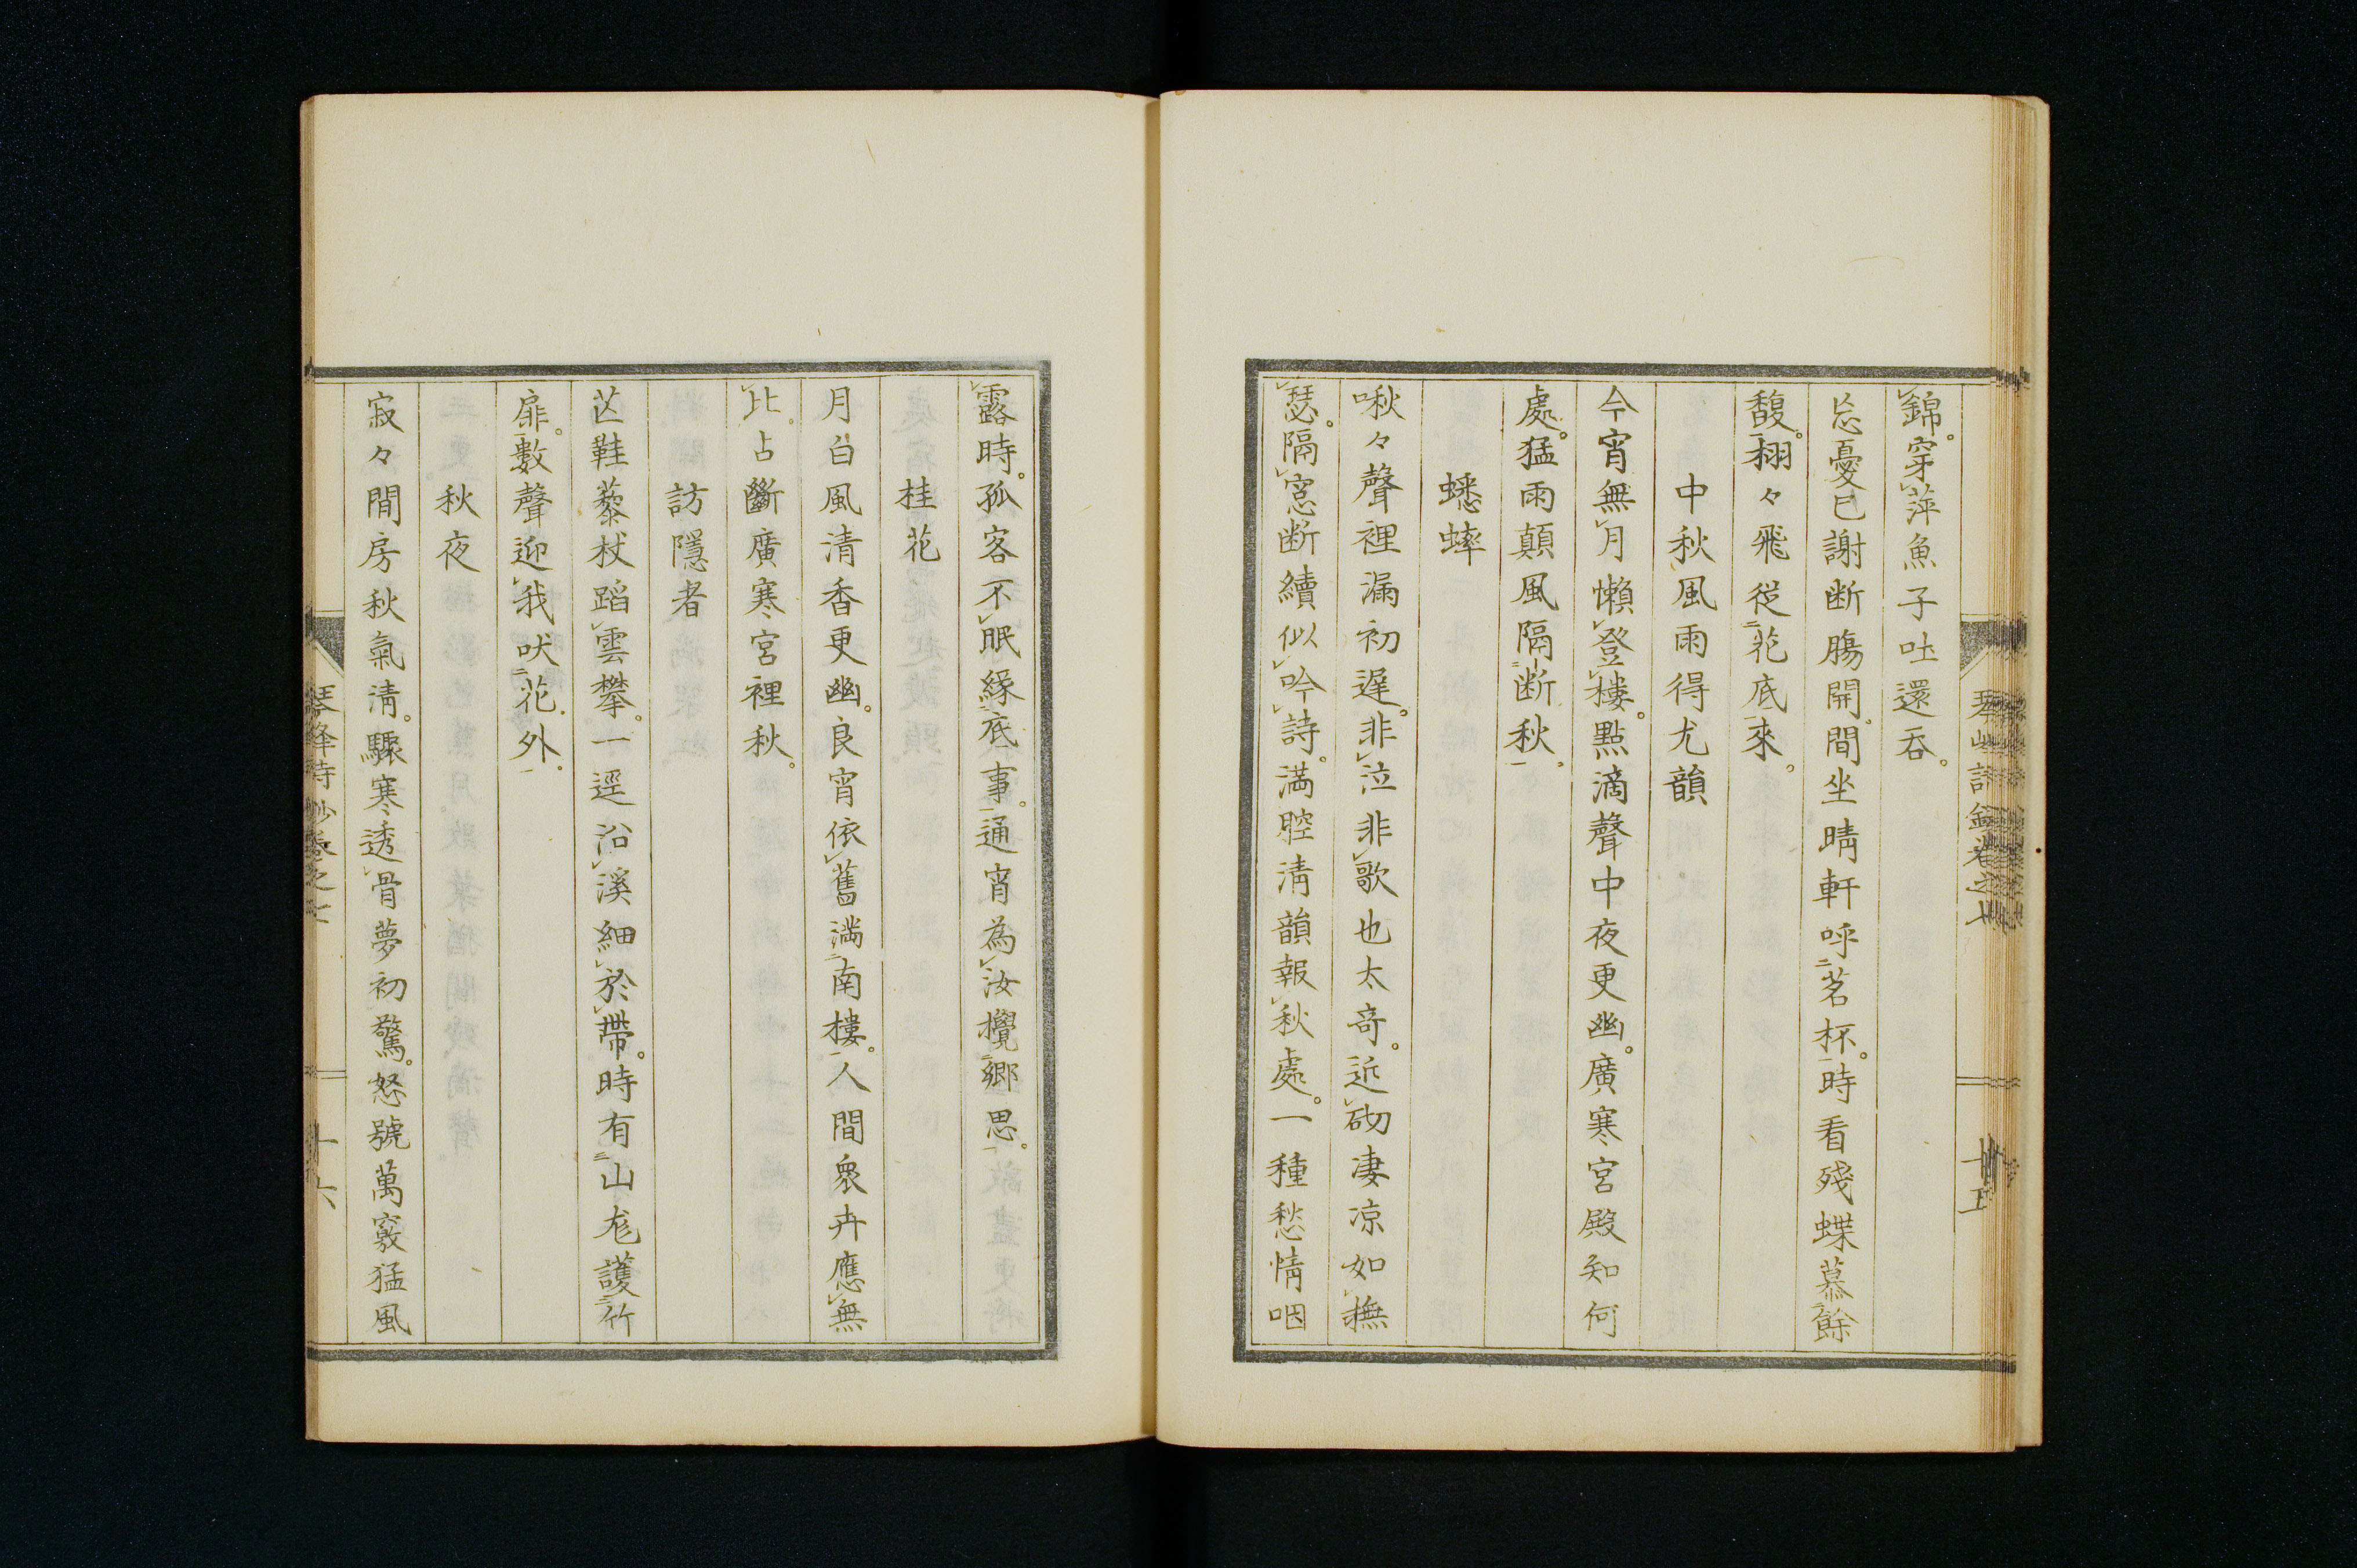 錦。穿萍魚子吐還呑。
忘憂已謝断膓開。間坐晴軒呼茗杯。時看殘蝶慕餘
馥。栩々飛従花底來。
中秋風雨得尤韻
今宵無月懶登樓。點滴聲中夜更幽。廣寒宮殿知何
處。猛雨顛風隔断秋。
蟋蟀
啾々聲裡漏初遲。非泣非歌也太竒。近砌凄凉如撫
瑟。隔窓断續似吟詩。満腔清韻報秋處。一種愁情咽
露時。孤客不眠緣底事。通宵為汝攪鄉思。
桂花
月白風清香更幽。良宵依舊満南樓。人間衆卉應無
比。占斷廣寒宮裡秋。
訪隱者
芒鞋藜杖蹈雲攀。一逕沿溪細於帶。時有山尨護竹
扉。數聲迎我吠花外。
秋夜
寂々間房秋氣清。驟寒透骨夢初驚。怒號萬竅猛風
琴峰詩鈔卷之七
十六